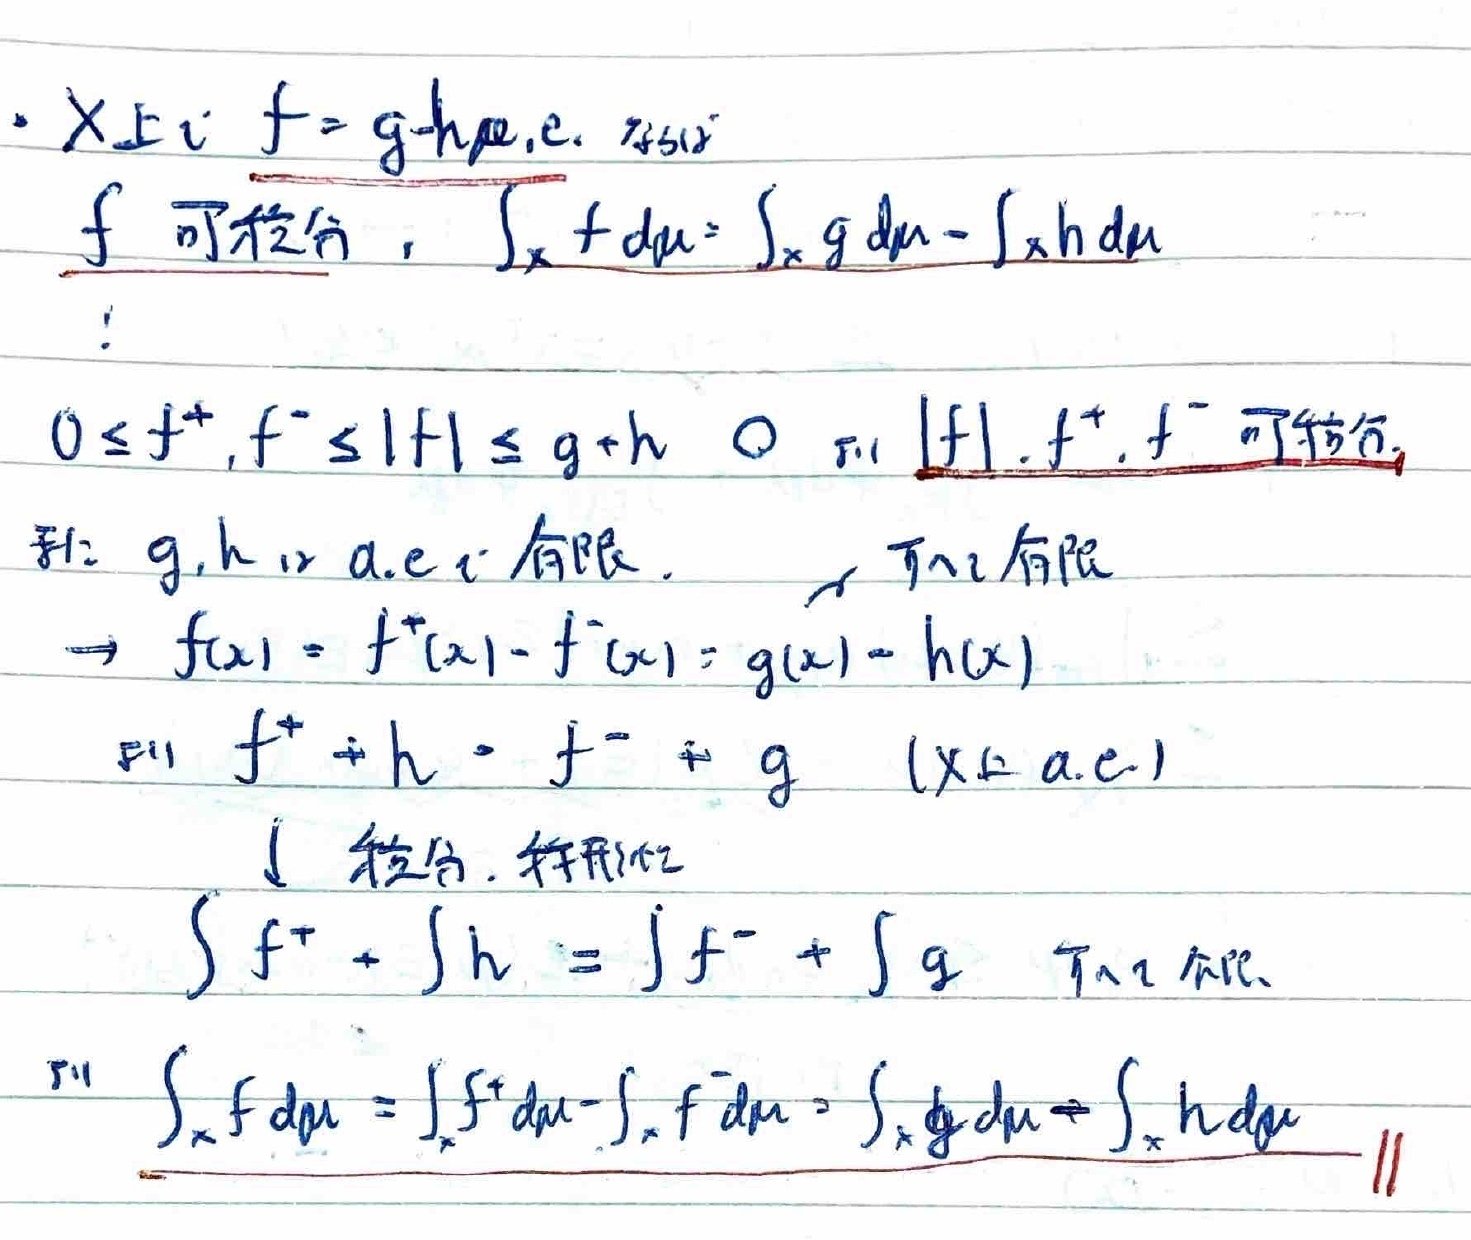 ・X上で f = g-h μ.a.e. ならば
f 可積分, ∫_X f dμ = ∫_X g dμ - ∫_X h dμ
0 ≤ f⁺, f⁻ ≤ |f| ≤ g + h より |f|, f⁺, f⁻ 可積分.
特に g, h は a.e で有限. すべて有限
→ f(x) = f⁺(x) - f⁻(x) = g(x) - h(x)
より f⁺ + h = f⁻ + g (X上 a.e.)
↓ 積分. 線形性
∫ f⁺ + ∫ h = ∫ f⁻ + ∫ g すべて有限.
より ∫_X f dμ = ∫_X f⁺ dμ - ∫_X f⁻ dμ = ∫_X g dμ - ∫_X h dμ